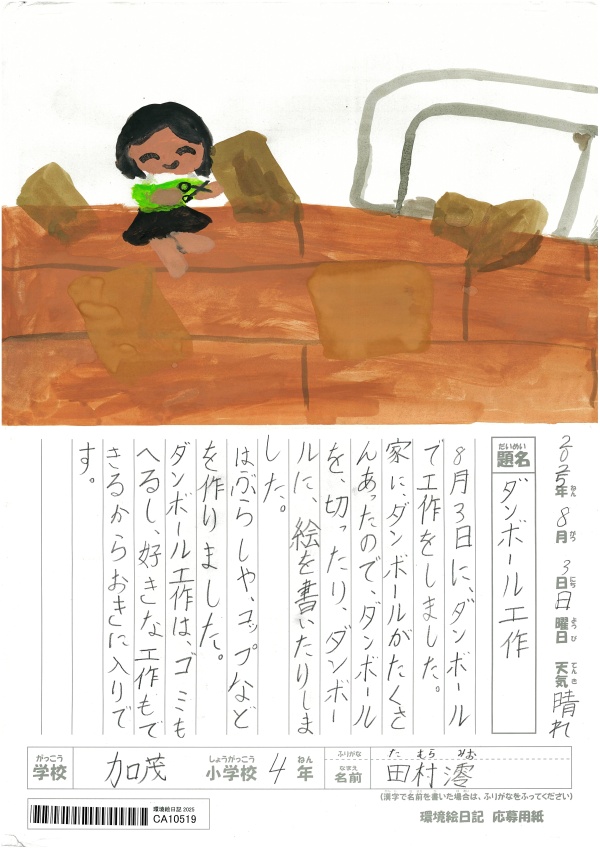 2025年 8月 3日 日曜日 天気 晴れ
ねん がつ にち ようび てんき
だいめい
題名
ダンボール工作
8月3日に、ダンボール
で工作をしました。
家に、ダンボールがたくさ
んあったので、ダンボール
を、切ったり、ダンボー
ルに、絵を書いたりしま
した。
はぶらしや、コップなど
を作りました。
ダンボール工作は、ゴミも
へるし、好きな工作もで
きるからおきに入りで
す。
がっこう しょうがっこう ねん ふりがな た むら みお
学校 加茂 小学校 4年 なまえ 名前 田村澪
(漢字で名前を書いた場合は、ふりがなをふってください)
環境絵日記 2025
CA10519
環境絵日記 応募用紙